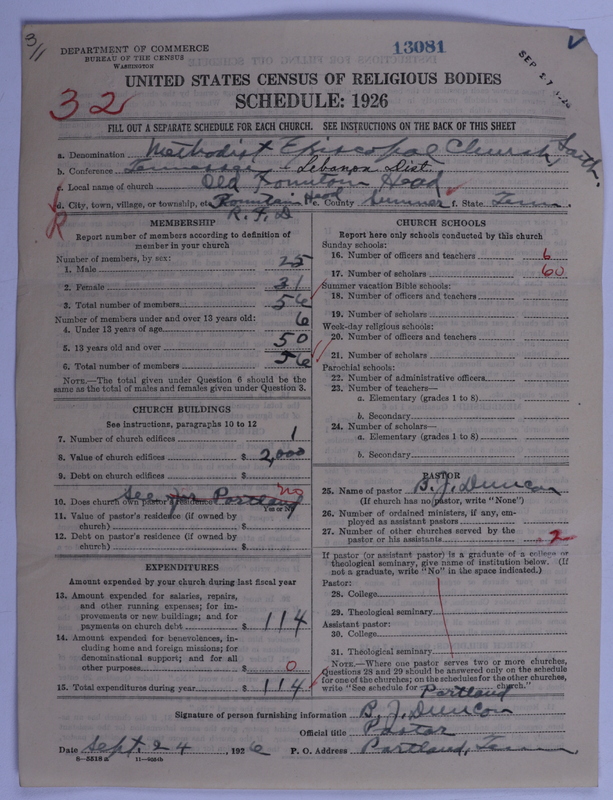 3/11
DEPARTMENT OF COMMERCE
BUREAU OF THE CENSUS
WASHINGTON
13081
SEP 27 1926
UNITED STATES CENSUS OF RELIGIOUS BODIES
32
SCHEDULE: 1926
FILL OUT A SEPARATE SCHEDULE FOR EACH CHURCH. SEE INSTRUCTIONS ON THE BACK OF THIS SHEET
a. Denomination Methodist Episcopal Church, South.
b. Conference Tennessee - Lebanon Dist.
c. Local name of church Old Fountain Head
d. City, town, village, or township, etc. Fountain Head e. County Sumner f. State Tenn.
R. F. D
R
MEMBERSHIP
Report number of members according to definition of
member in your church
Number of members, by sex:
1. Male 25
2. Female 31
3. Total number of members 56
Number of members under and over 13 years old:
4. Under 13 years of age 6
5. 13 years old and over 50
6. Total number of members 56
NOTE.—The total given under Question 6 should be
same as the total of males and females given under Question 3.
CHURCH BUILDINGS
See instructions, paragraphs 10 to 12
7. Number of church edifices 1
8. Value of church edifices $ 2,000
9. Debt on church edifices $
See for Partland no
10. Does church own pastor's residence?
Yes or No
11. Value of pastor's residence (if owned by
church) $
12. Debt on pastor's residence (if owned by
church) $
EXPENDITURES
Amount expended by your church during last fiscal year
13. Amount expended for salaries, repairs,
and other running expenses; for im-
provements or new buildings; and for
payments on church debt $ 114
14. Amount expended for benevolences, in-
cluding home and foreign missions; for
denominational support; and for all
other purposes $ 0
15. Total expenditures during year $ 114
CHURCH SCHOOLS
Report here only schools conducted by this church
Sunday schools:
16. Number of officers and teachers 6
17. Number of scholars 60
Summer vacation Bible schools:
18. Number of officers and teachers
19. Number of scholars
Week-day religious schools:
20. Number of officers and teachers
21. Number of scholars
Parochial schools:
22. Number of administrative officers
23. Number of teachers—
a. Elementary (grades 1 to 8)
b. Secondary
24. Number of scholars—
a. Elementary (grades 1 to 8)
b. Secondary
PASTOR
25. Name of pastor B. J. Duncan
(If church has no pastor, write "None")
26. Number of ordained ministers, if any, em-
ployed as assistant pastors
27. Number of other churches served by the
pastor or his assistants 2
If pastor (or assistant pastor) is a graduate of a college or
theological seminary, give name of institution below. (If
not a graduate, write "No" in the space indicated.)
Pastor:
28. College
29. Theological seminary
Assistant pastor:
30. College
31. Theological seminary
NOTE.—Where one pastor serves two or more churches,
Questions 28 and 29 should be answered only on the schedule
for one of the churches; on the schedules for the other churches,
write "See schedule for Partland church."
Signature of person furnishing information B. J. Duncan
Official title Pastor
Date Sept. 24, 1926 P. O. Address Partland, Tenn.
8—5518a 11—9054b